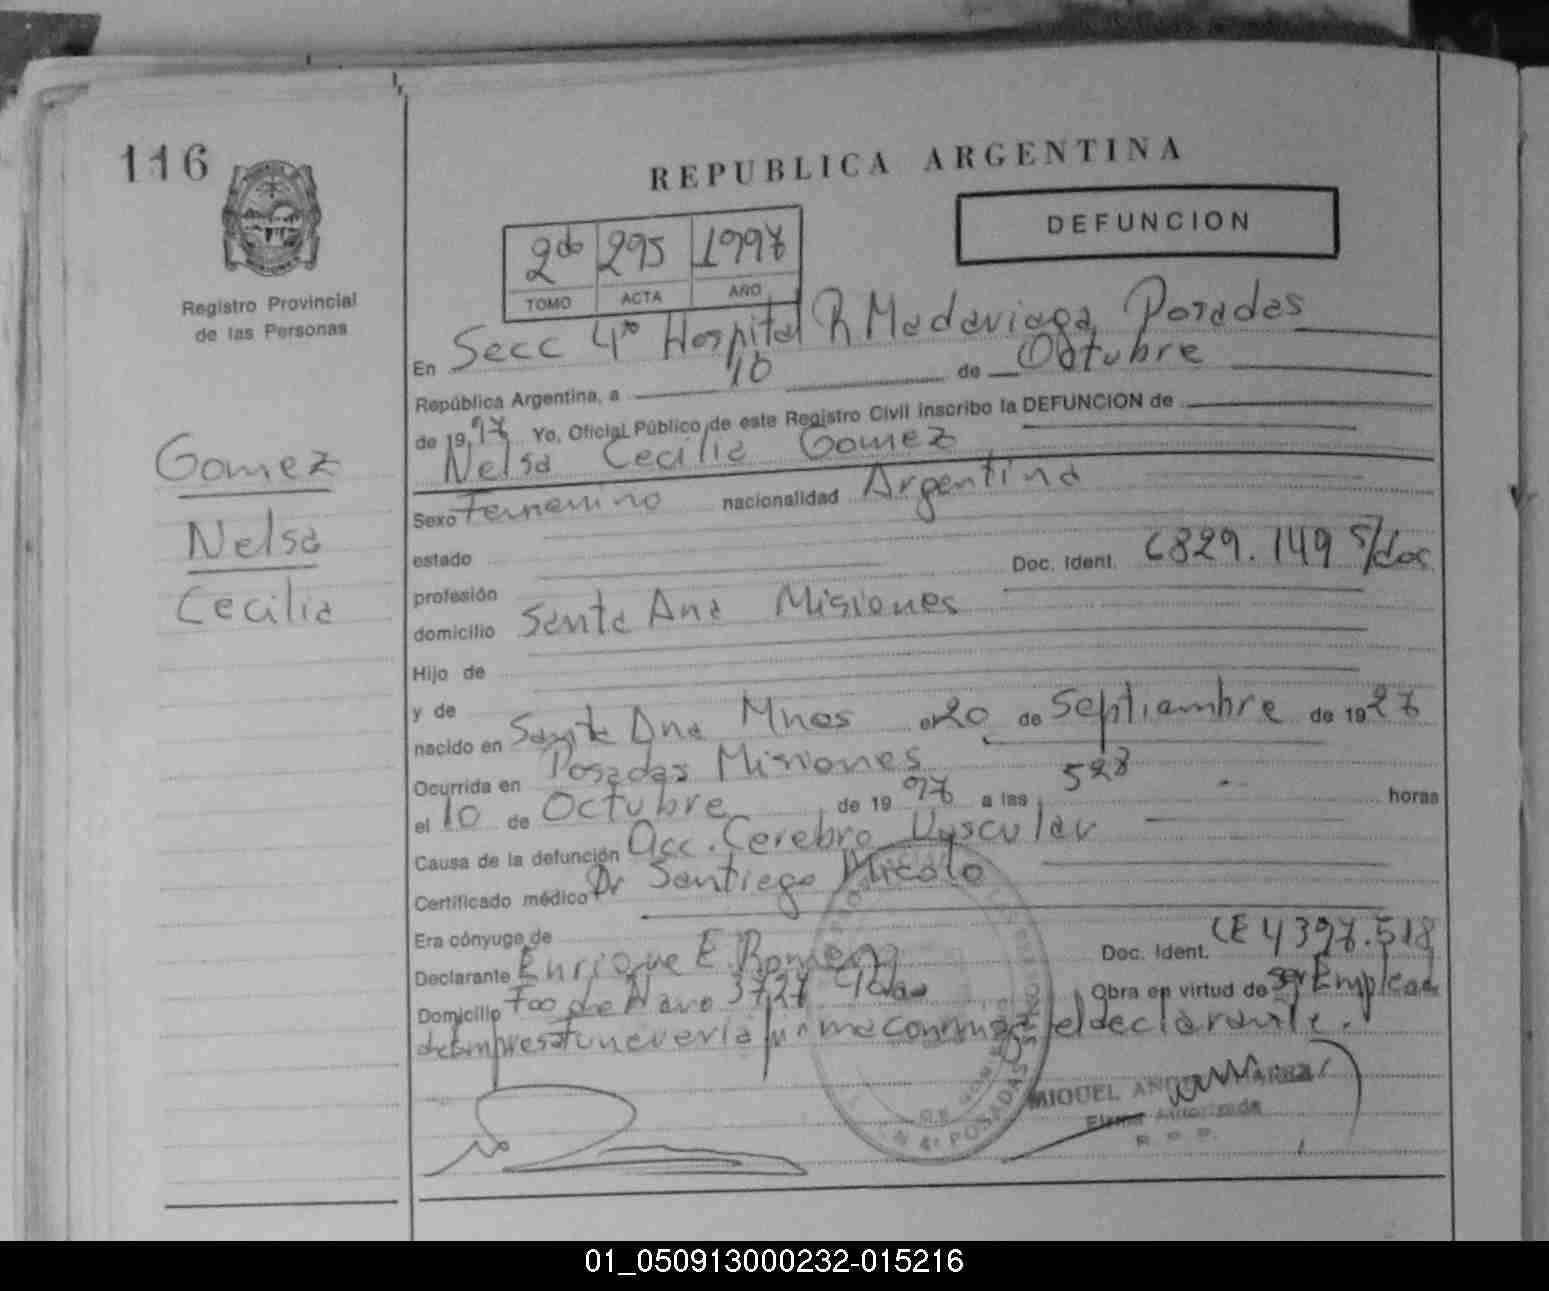 116
REPUBLICA ARGENTINA
DEFUNCION
2do 295 1997
TOMO ACTA AÑO
Registro Provincial
de las Personas
En Secc 4ta Hospital R Madariaga, Posadas
República Argentina, a 10 de Octubre
de 1997 Yo, Oficial Público de este Registro Civil inscribo la DEFUNCION de
Nelsa Cecilia Gomez
Gomez
Nelsa
Cecilia
Sexo Femenino nacionalidad Argentina
estado
Doc. Ident. 6829.149 s/doc
profesión
domicilio Santa Ana Misiones
Hijo de
y de
nacido en Santa Ana Mnes el 20 de Septiembre de 1927
Ocurrida en Posadas Misiones
el 10 de Octubre de 1997 a las 528 horas
Causa de la defunción Acc. Cerebro Vascular
Certificado médico Dr Santiago Micolo
Era cónyuge de
Declarante Enrique E Romero Doc. Ident. CE 4397.518
Domicilio Fco de Haro 3727 Pdas Obra en virtud de ser Emplead
de Empresa funeveria firma conmigo el declarante.
MIGUEL
Firma Autorizada
R. P. P.
4ª POSADAS
01_050913000232-015216